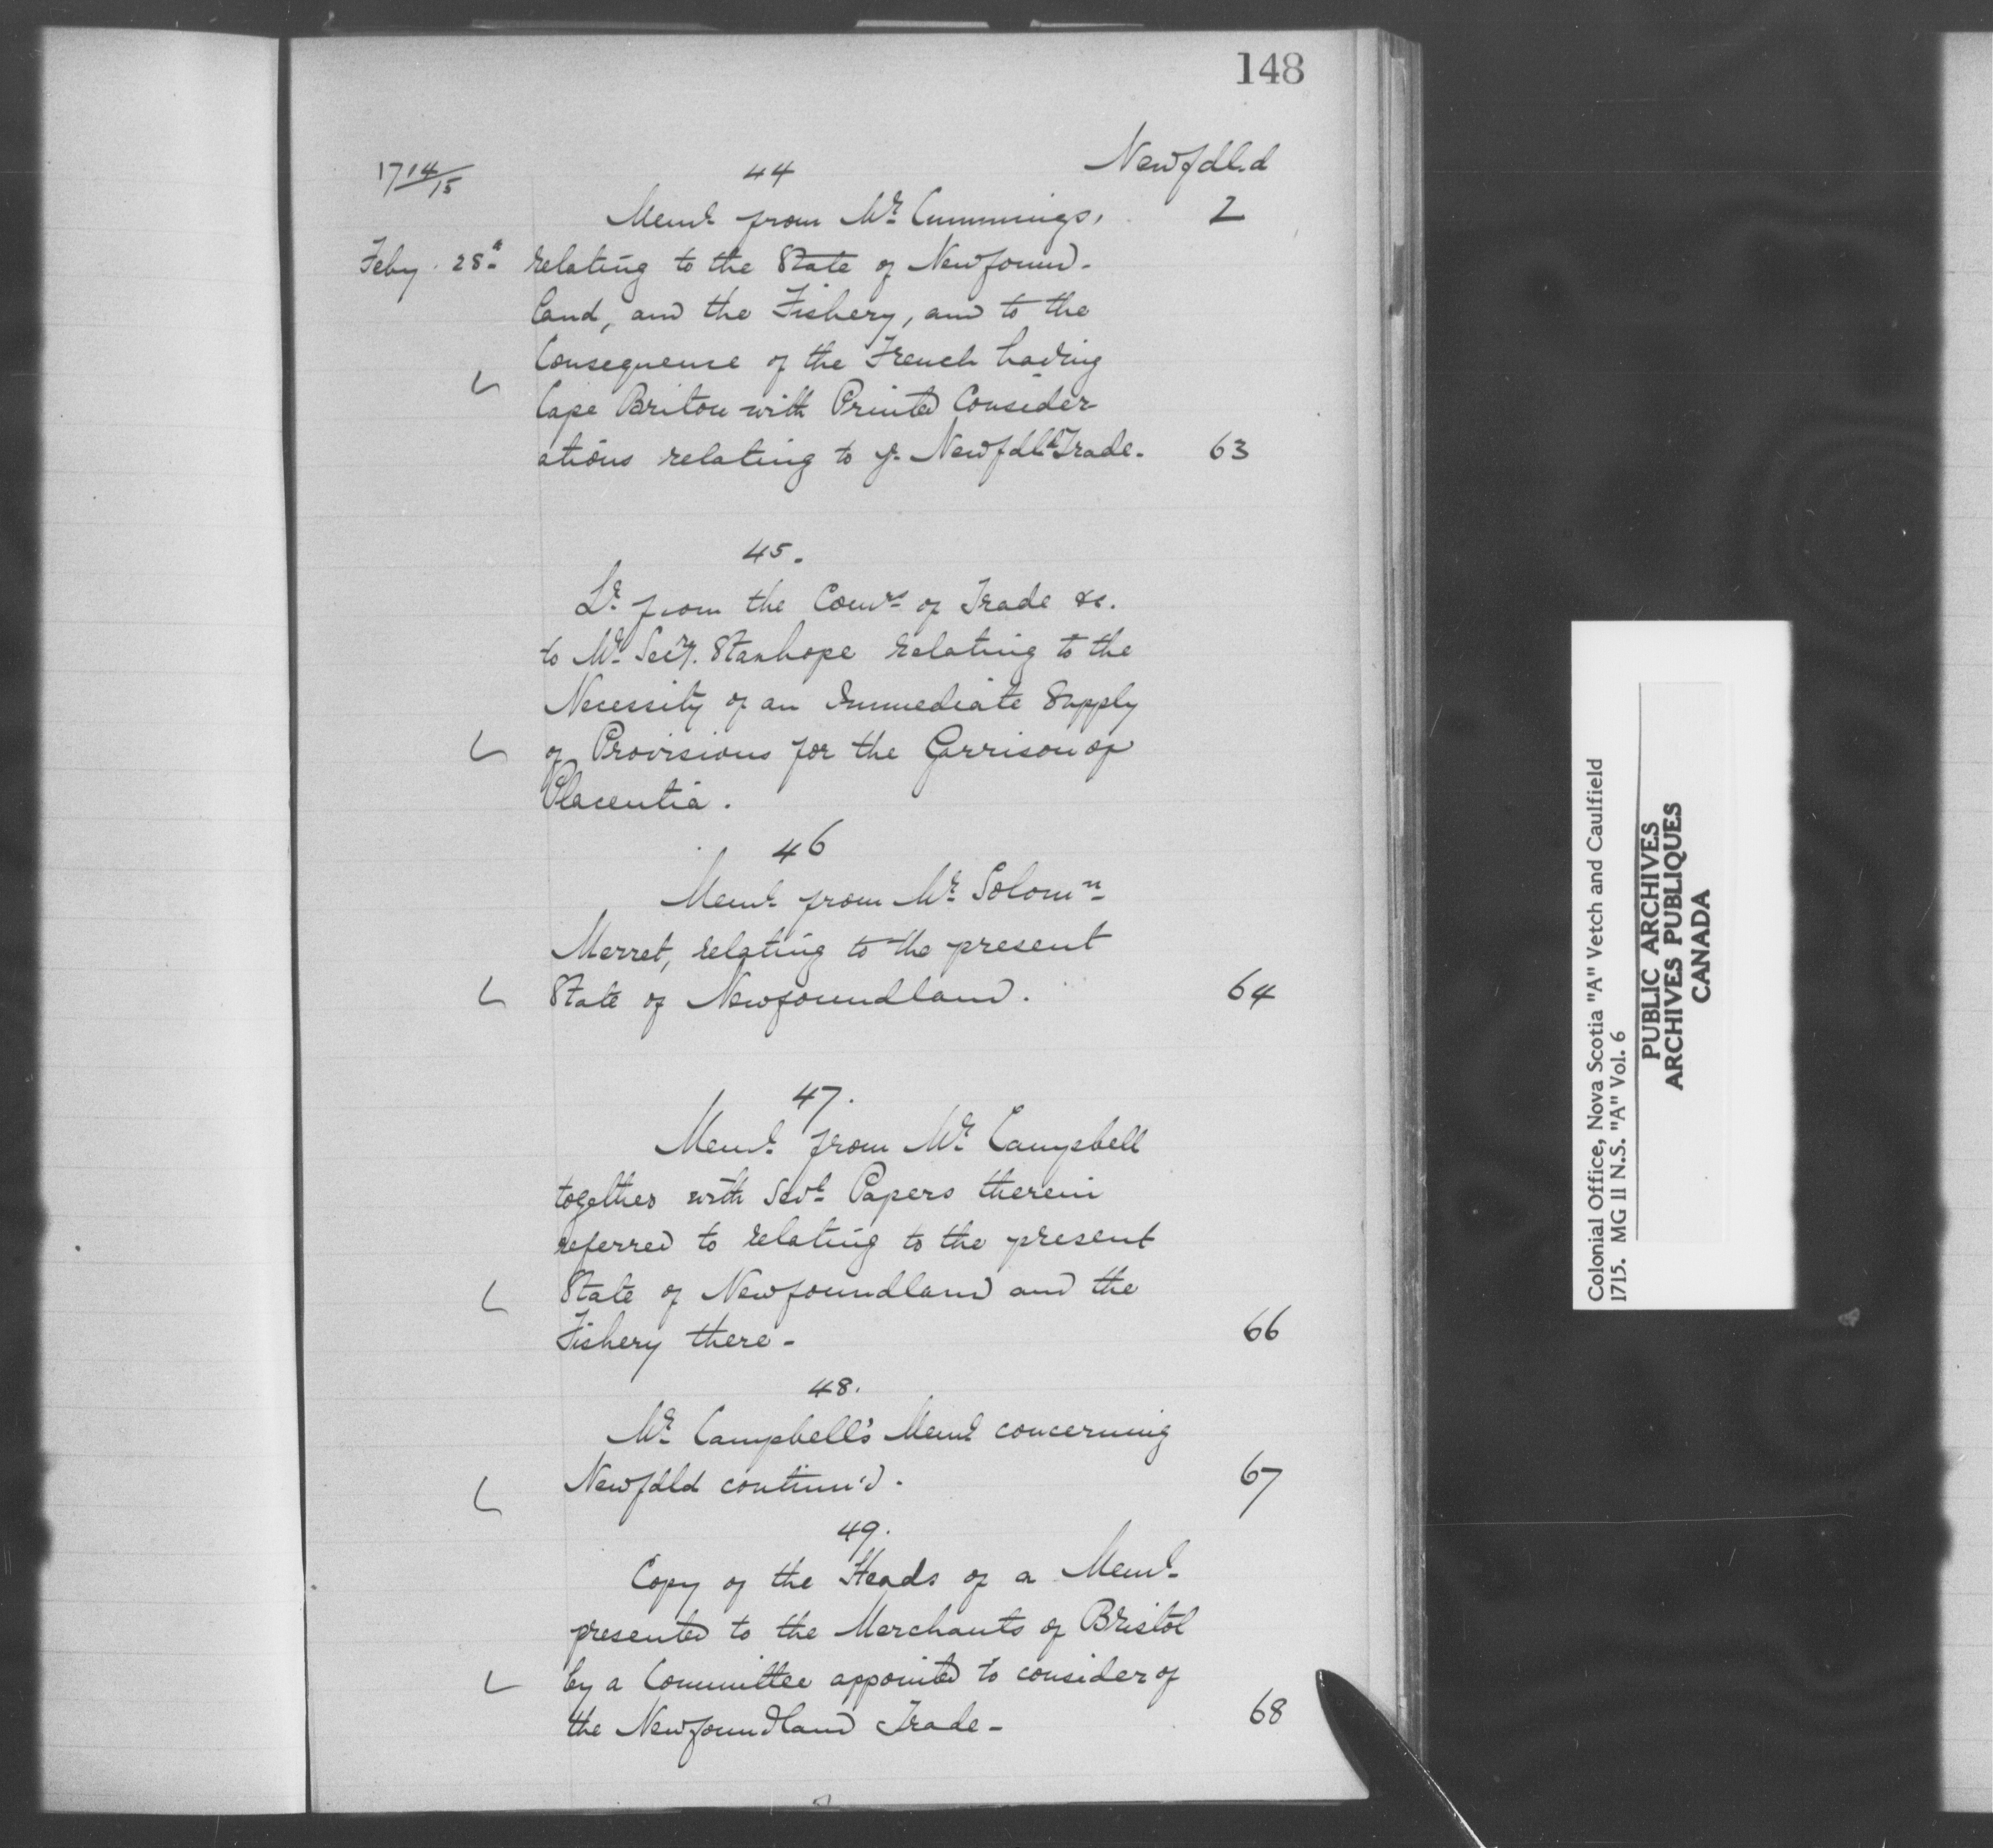 148
Newfdld
1714/15
44
Meml from Mr Cummings, 2
Feby. 28th relating to the State of Newfound-
land, and the Fishery, and to the
Consequence of the French having
Cape Briton with Printed Consider-
ations relating to ye Newfdld Trade. 63
45.
Lr from the Comrs of Trade &c.
to Mr Secry. Stanhope relating to the
Necessity of an Immediate Supply
of Provisions for the Garrison of
Placentia.
46
Meml from Mr Solomn
Merret, relating to the present
State of Newfoundland. 64
47.
Meml from Mr Campbell
together with Sevl Papers therein
referred to relating to the present
State of Newfoundland and the
Fishery there - 66
48.
Mr Campbell's Meml concerning
Newfdld continu'd. 67
49.
Copy of the Heads of a Meml
presented to the Merchants of Bristol
by a Committee appointed to consider of
the Newfoundland Trade - 68
Colonial Office, Nova Scotia "A" Vetch and Caulfield
1715. MG 11 N.S. "A" Vol. 6
PUBLIC ARCHIVES
ARCHIVES PUBLIQUES
CANADA